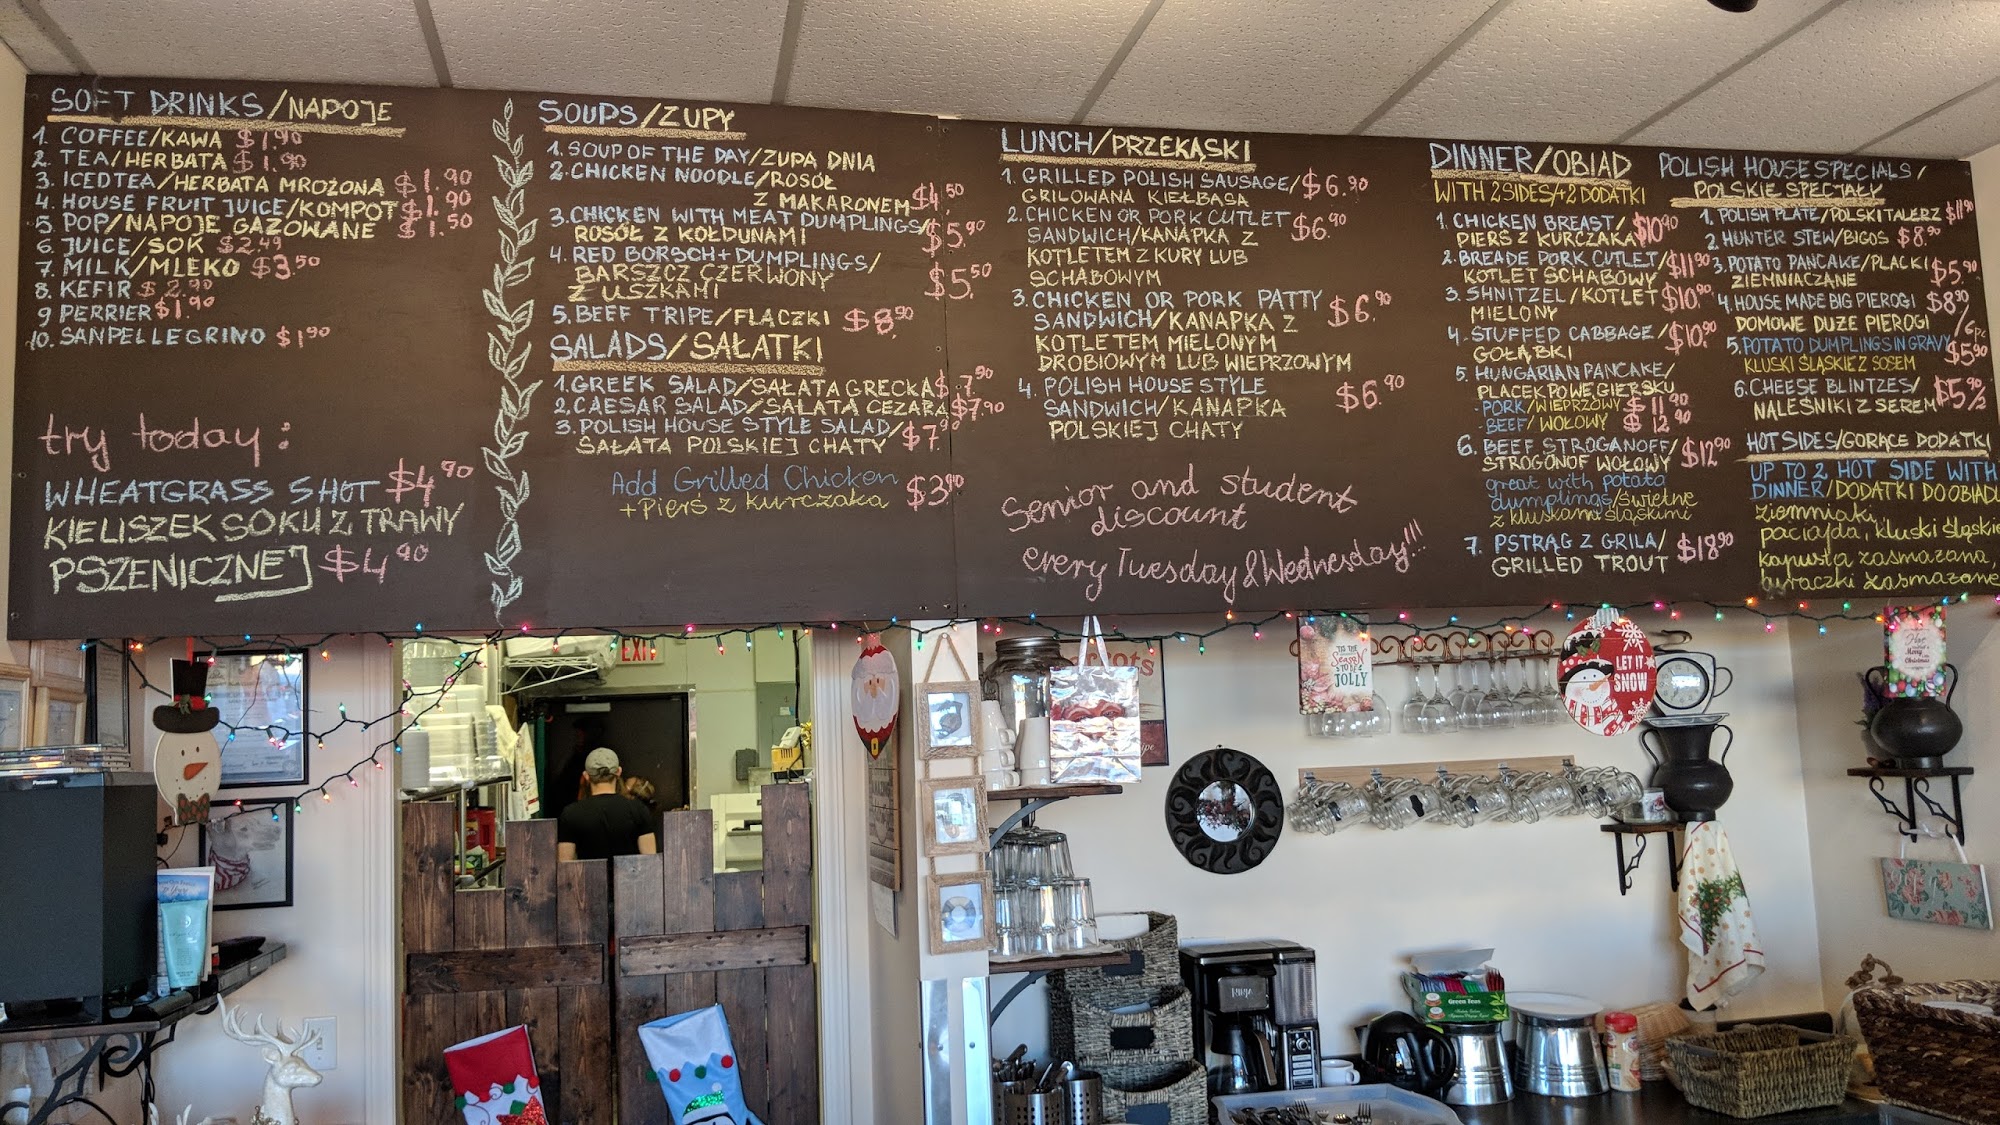 SOFT DRINKS/NAPOJE
1. COFFEE/KAWA $1.90
2. TEA/HERBATA $1.90
3. ICED TEA/HERBATA MROŻONA $1.90
4. HOUSE FRUIT JUICE/KOMPOT $1.90
5. POP/NAPOJE GAZOWANE $1.50
6. JUICE/SOK $2.49
7. MILK/MLEKO $3.50
8. KEFIR $2.90
9 PERRIER $1.90
10. SANPELLEGRINO $1.90
try today:
WHEATGRASS SHOT $4.90
KIELISZEK SOKU Z TRAWY
PSZENICZNEJ $4.90
SOUPS/ZUPY
1. SOUP OF THE DAY/ZUPA DNIA
2. CHICKEN NOODLE/ROSÓŁ
Z MAKARONEM $4.50
3. CHICKEN WITH MEAT DUMPLINGS/ $5.90
ROSÓŁ Z KOŁDUNAMI
4. RED BORSCH+DUMPLINGS/
BARSZCZ CZERWONY $5.50
Z USZKAMI
5. BEEF TRIPE/FLACZKI $8.90
SALADS/SAŁATKI
1. GREEK SALAD/SAŁATA GRECKA $7.90
2. CAESAR SALAD/SALATA CEZARA $7.90
3. POLISH HOUSE STYLE SALAD/ $7.90
SAŁATA POLSKIEJ CHATY
Add Grilled Chicken $3.90
+Pierś z kurczaka
LUNCH/PRZEKĄSKI
1. GRILLED POLISH SAUSAGE/ $6.90
GRILOWANA KIEŁBASA
2. CHICKEN OR PORK CUTLET $6.90
SANDWICH/KANAPKA Z
KOTLETEM Z KURY LUB
SCHABOWYM
3. CHICKEN OR PORK PATTY $6.90
SANDWICH/KANAPKA Z
KOTLETEM MIELONYM
DROBIOWYM LUB WIEPRZOWYM
4. POLISH HOUSE STYLE $6.90
SANDWICH/KANAPKA
POLSKIEJ CHATY
Senior and student
discount
every Tuesday & Wednesday!!!
DINNER/OBIAD
WITH 2 SIDES/+2 DODATKI
1. CHICKEN BREAST/ $10.90
PIERŚ Z KURCZAKA
2. BREADE PORK CUTLET/ $11.90
KOTLET SCHABOWY
3. SHNITZEL/KOTLET $10.90
MIELONY
4. STUFFED CABBAGE/ $10.90
GOŁĄBKI
5. HUNGARIAN PANCAKE/
PLACEK PO WĘGIERSKU
-PORK/WIEPRZOWY $11.90
-BEEF/WOŁOWY $12.90
6. BEEF STROGANOFF/ $12.90
STROGONOF WOŁOWY
great with potato
dumplings/świetne
z kluskami śląskimi
7. PSTRĄG Z GRILA/ $18.90
GRILLED TROUT
POLISH HOUSE SPECIALS/
POLSKIE SPECJAŁY
1. POLISH PLATE/POLSKI TALERZ $11.90
2. HUNTER STEW/BIGOS $8.90
3. POTATO PANCAKE/PLACKI $5.90
ZIEMNIACZANE
4. HOUSE MADE BIG PIEROGI $8.90
DOMOWE DUŻE PIEROGI /6pc
5. POTATO DUMPLINGS IN GRAVY $5.90
KLUSKI ŚLĄSKIE Z SOSEM
6. CHEESE BLINTZES/ $5.90/2
NALEŚNIKI Z SEREM
HOT SIDES/GORĄCE DODATKI
UP TO 2 HOT SIDE WITH
DINNER/DODATKI DO OBIADU
ziemniaki,
paciajda, kluski śląskie
kapusta zasmażana,
buraczki zasmażane
EXIT
Panasonic
'TIS THE
Season
TO BE
JOLLY
LET IT
SNOW
Merry
Christmas
NINJA
Green Teas